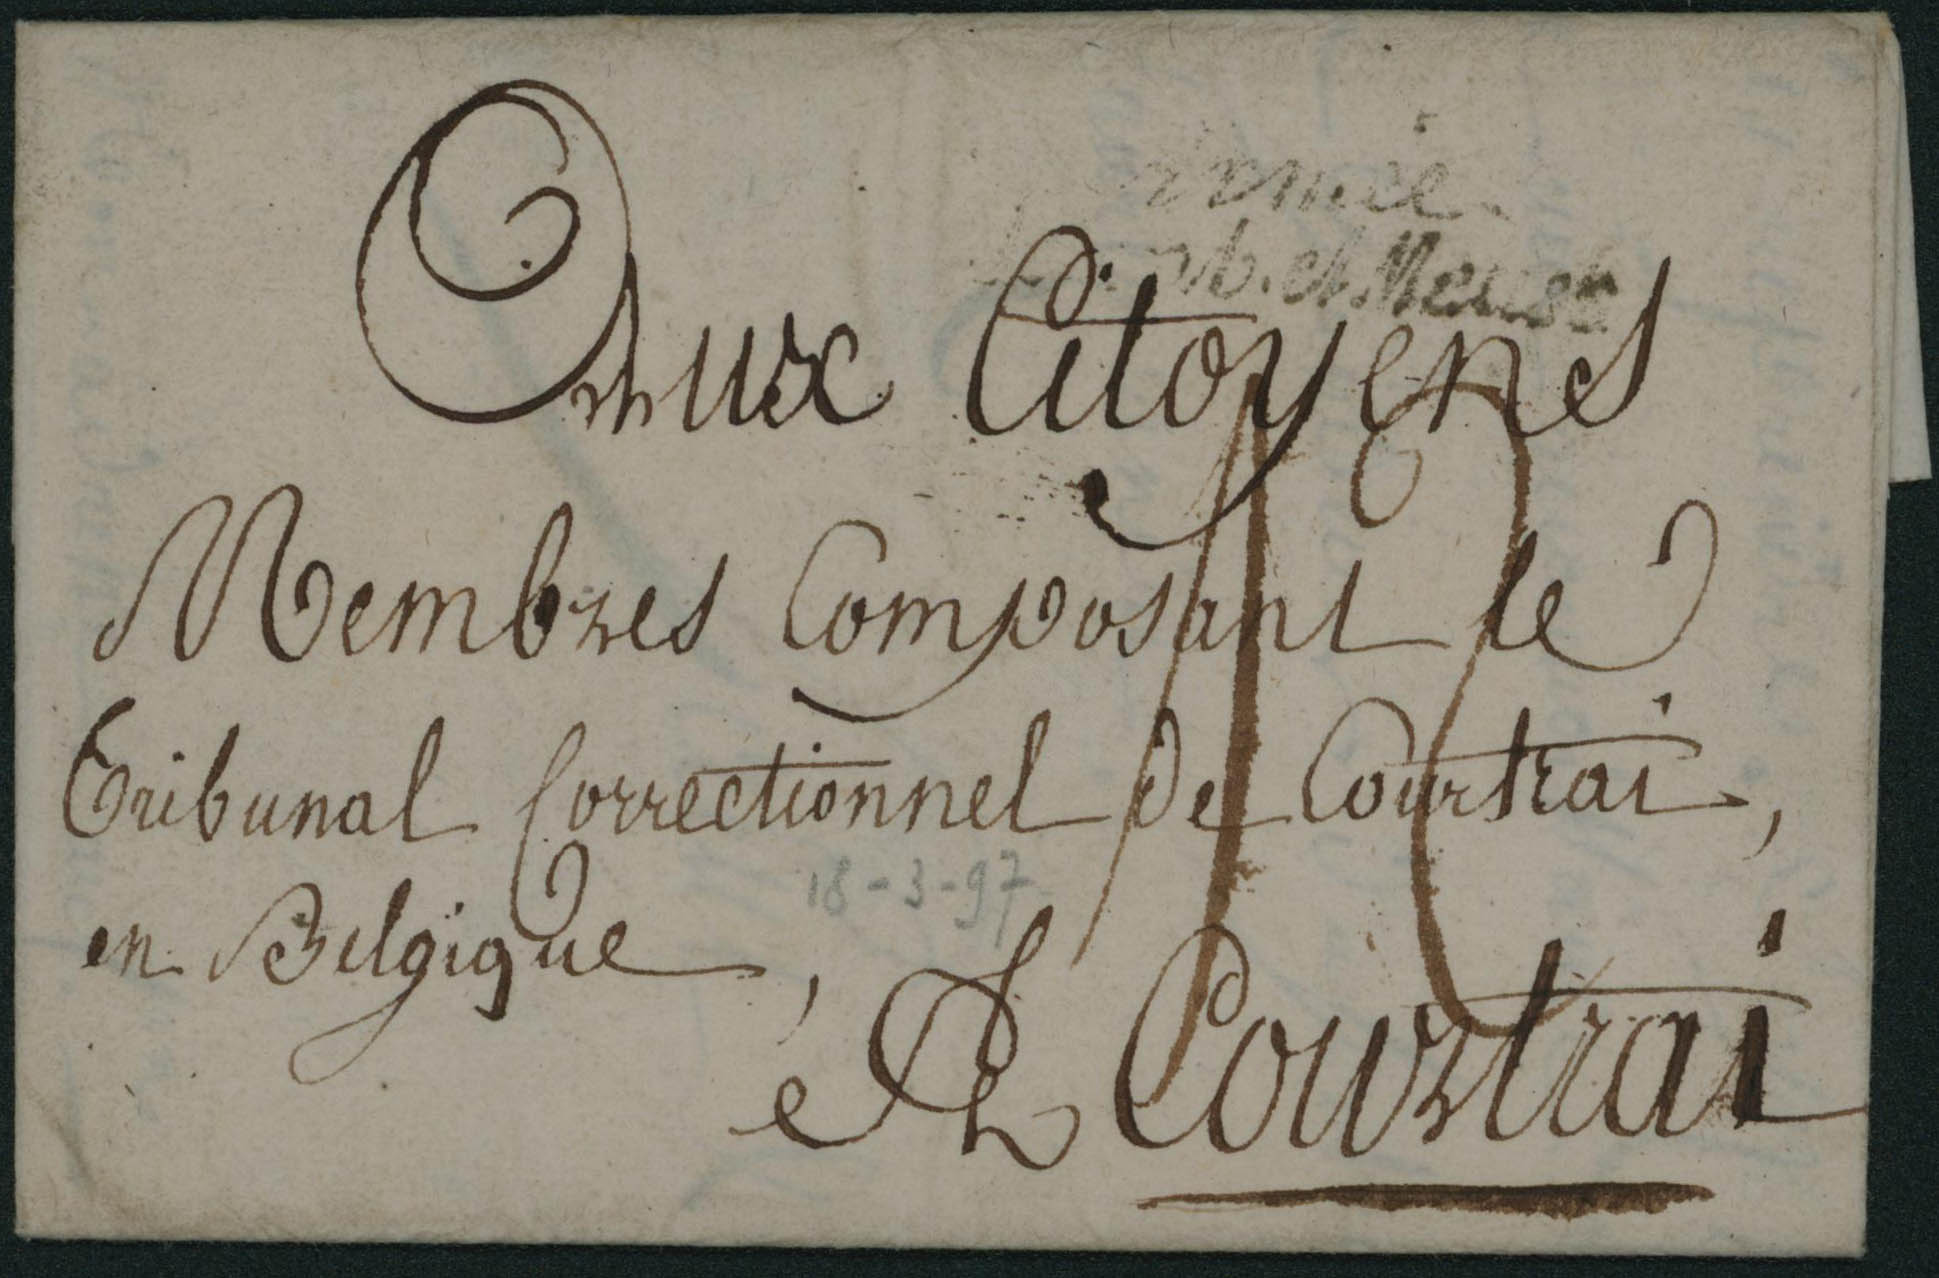 Armée
Samb. et Meuse
Aux Citoyens
Membres Composant le
Tribunal Correctionnel de Courtrai,
en Belgique,
18-3-97
A Courtrai